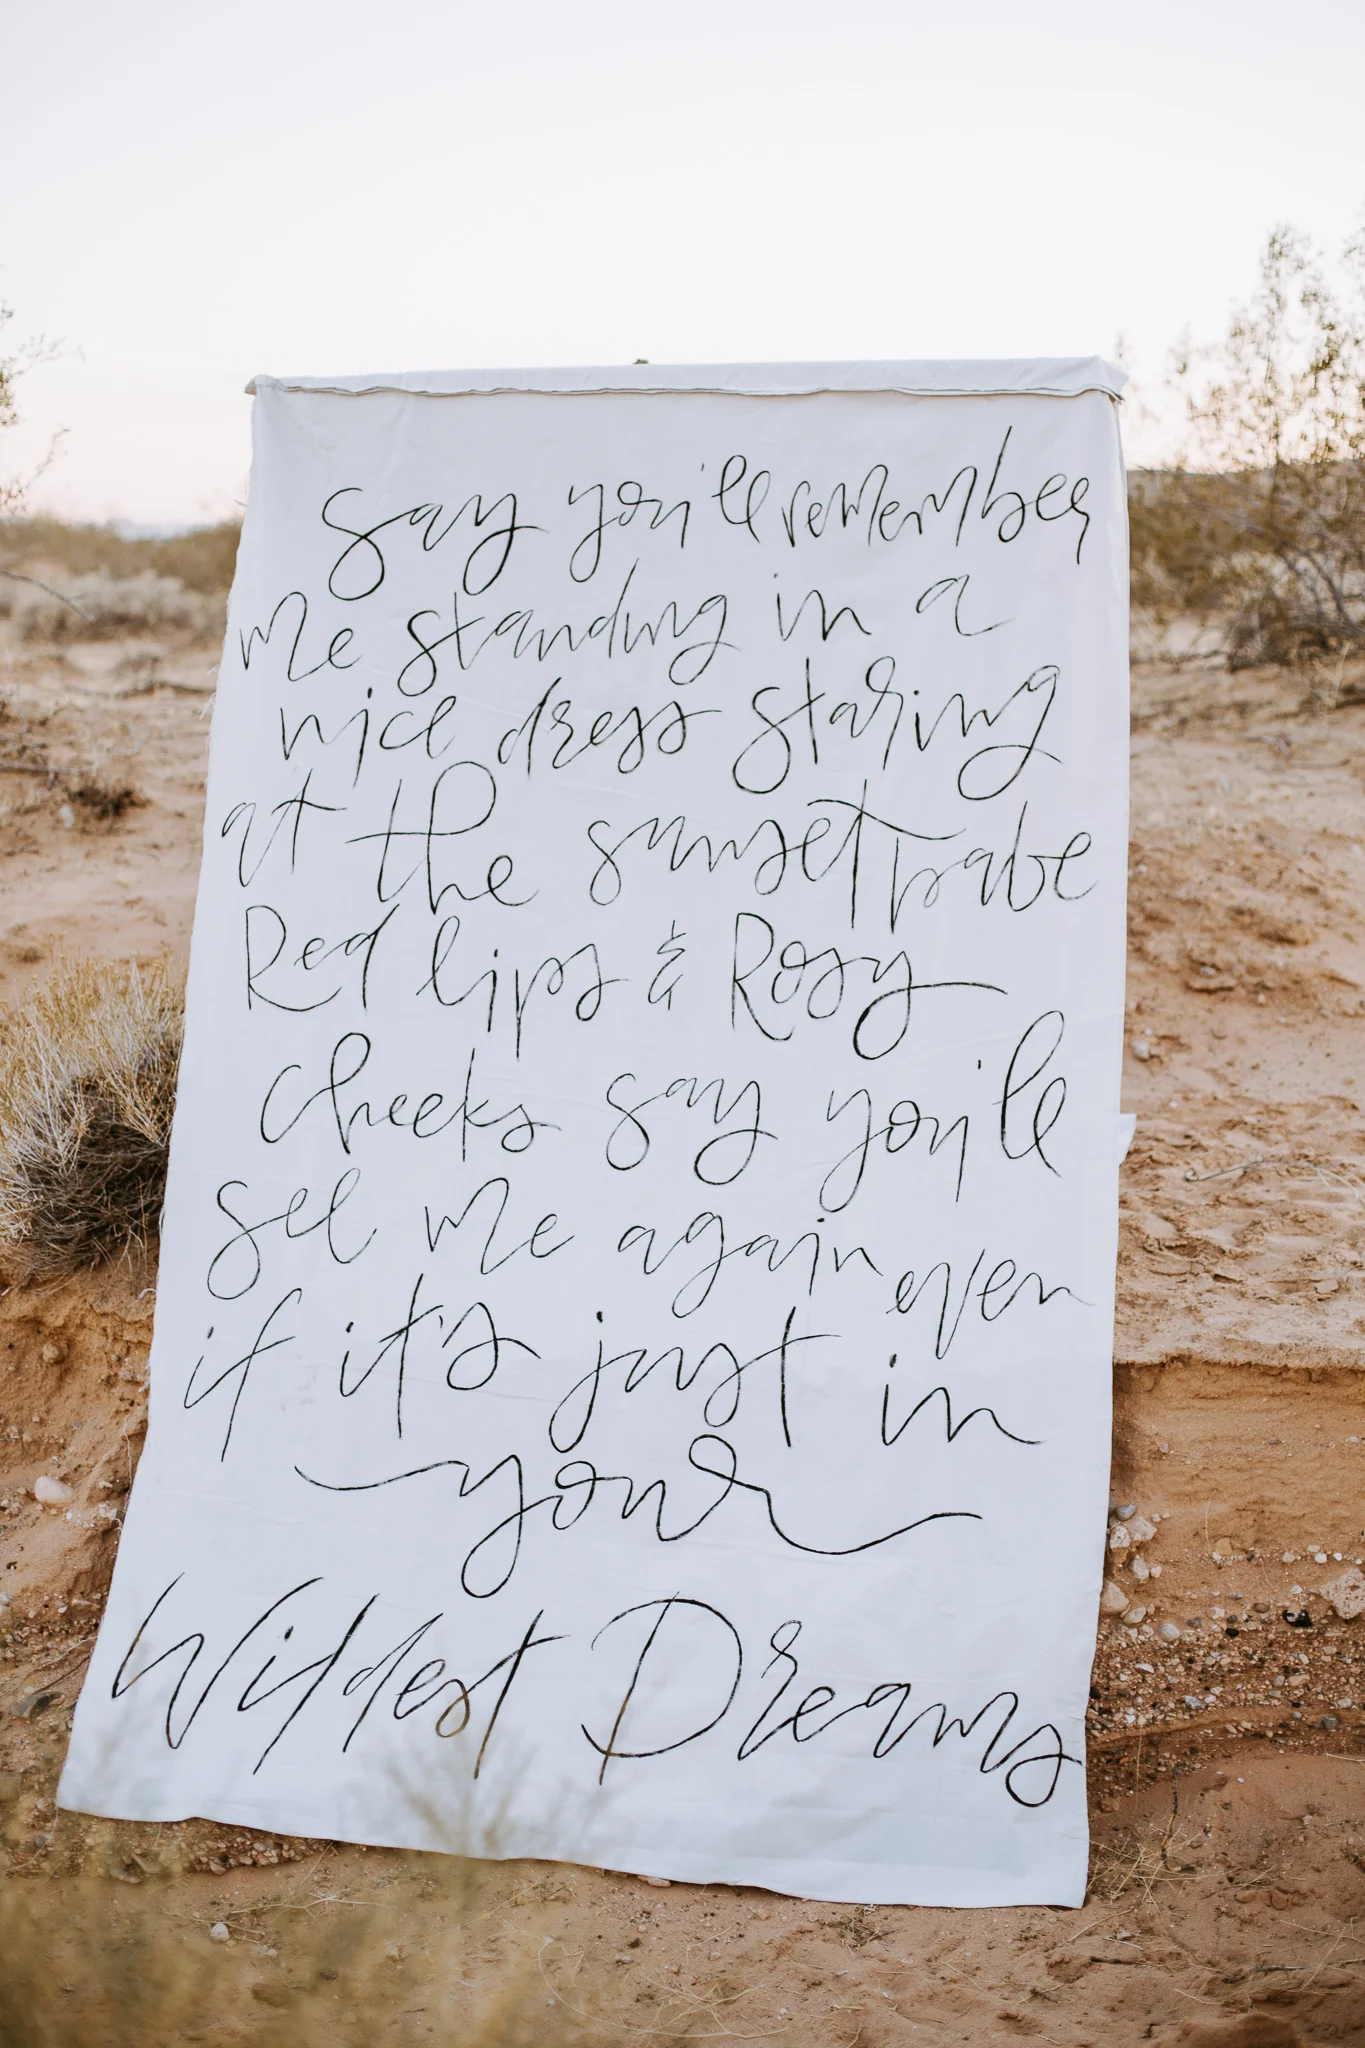 say you'll remember
me standing in a
nice dress staring
at the sunset babe
Red lips & Rosy
cheeks say you'll
see me again even
if it's just in
your
Wildest Dreams